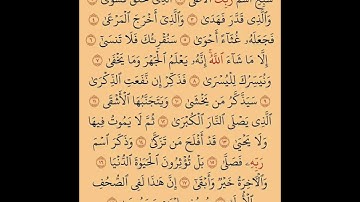 سَبِّحِ اسْمَ رَبِّكَ الْأَعْلَى ۝ الَّذِي خَلَقَ فَسَوَّىٰ
وَالَّذِي قَدَّرَ فَهَدَىٰ ۝ وَالَّذِي أَخْرَجَ الْمَرْعَىٰ
فَجَعَلَهُ غُثَاءً أَحْوَىٰ ۝ سَنُقْرِئُكَ فَلَا تَنسَىٰ
إِلَّا مَا شَاءَ اللَّهُ إِنَّهُ يَعْلَمُ الْجَهْرَ وَمَا يَخْفَىٰ
وَنُيَسِّرُكَ لِلْيُسْرَىٰ ۝ فَذَكِّرْ إِن نَّفَعَتِ الذِّكْرَىٰ
سَيَذَّكَّرُ مَن يَخْشَىٰ ۝ وَيَتَجَنَّبُهَا الْأَشْقَى
الَّذِي يَصْلَى النَّارَ الْكُبْرَىٰ ۝ ثُمَّ لَا يَمُوتُ فِيهَا
وَلَا يَحْيَىٰ ۝ قَدْ أَفْلَحَ مَن تَزَكَّىٰ ۝ وَذَكَرَ اسْمَ
رَبِّهِ فَصَلَّىٰ ۝ بَلْ تُؤْثِرُونَ الْحَيَوٰةَ الدُّنْيَا
وَالْآخِرَةُ خَيْرٌ وَأَبْقَىٰ ۝ إِنَّ هَٰذَا لَفِي الصُّحُفِ